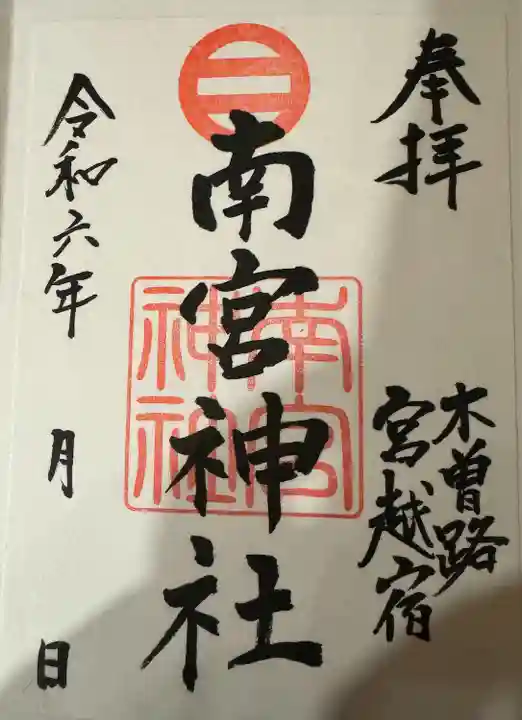 奉拝
木曽路
宮越宿
二
南宮神社
南宮
神社
令和六年 月 日